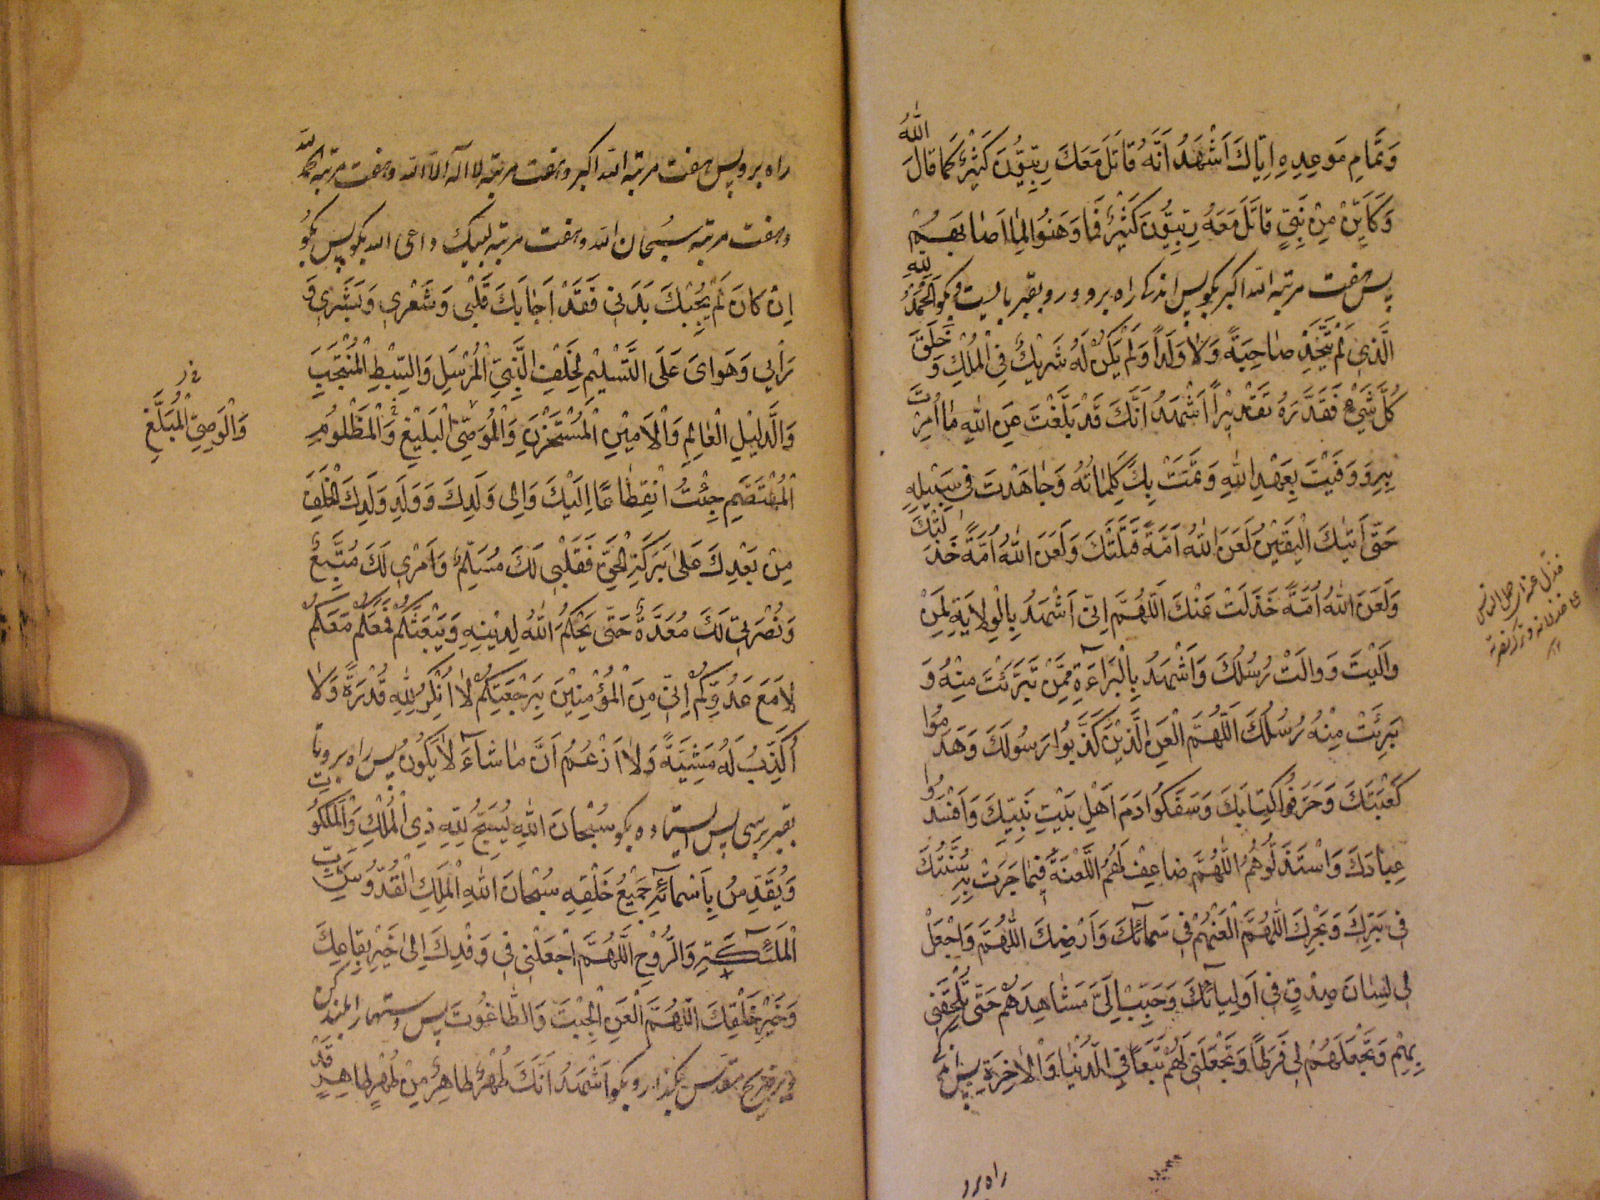 وَتَمامِ مَوعِدِهِ اِيّاكَ اَشْهَدُ اَنَّهُ قاتَلَ مَعَكَ رِبّيُّونَ كَثيْرٌ كَما قالَ اللّٰهُ
وَكَاَيِّنْ مِنْ نَبِيٍّ قاتَلَ مَعَهُ رِبِّيُّونَ كَثيْرٌ فَما وَهَنُوا لِما اَصابَهُمْ
پس هفت مرتبه الله اكبر بگو پس اندكى راه برو و رو بقبر بايست و بگو اَلْحَمْدُ لِلّهِ
الَّذي لَمْ يَتَّخِذْ صاحِبَةً وَلا وَلَداً وَلَمْ يَكُنْ لَهُ شَريْكٌ فِي الْمُلْكِ وَخَلَقَ
كُلَّ شَيْءٍ فَقَدَّرَهُ تَقْديْراً اَشْهَدُ اَنَّكَ قَدْ بَلَّغْتَ عَنِ اللّٰهِ ما اُمِرْتَ
بِهِ وَوَفَيْتَ بِعَهْدِ اللّٰهِ وَتَمَّتْ بِكَ كَلِماتُهُ وَجاهَدْتَ في سَبيْلِهِ
حَتّى اَتيكَ الْيَقيْنُ لَعَنَ اللّٰهُ اُمَّةً قَتَلَتْكَ وَلَعَنَ اللّٰهُ اُمَّةً خَذَلَتْكَ
وَلَعَنَ اللّٰهُ اُمَّةً خَذَلَتْ عَنْكَ اَللّهُمَّ اِنّي اَشْهَدُ بِالْوِلايَةِ لِمَنْ
والَيْتَ وَوالَتْ رُسُلُكَ وَاَشْهَدُ بِالْبَراءَةِ مِمَّنْ تَبَرَّئْتَ مِنْهُ وَ
بَرِئَتْ مِنْهُ رُسُلُكَ اَللّهُمَّ الْعَنِ الَّذيْنَ كَذَّبُوا رَسُولَكَ وَهَدَمُوا
كَعْبَتَكَ وَحَرَّفُوا كِتابَكَ وَسَفَكُوا دَمَ اَهْلِ بَيْتِ نَبِيِّكَ وَاَفْسَدُوا
عِبادَكَ وَاسْتَذَلُّوهُمْ اَللّٰهُمَّ ضاعِفْ لَهُمُ اللَّعْنَةَ فيْما جَرَتْ بِهِ سُنَّتُكَ
في بَرِّكَ وَبَحْرِكَ اَللّٰهُمَّ الْعَنْهُمْ في سَمائِكَ وَاَرْضِكَ اَللّٰهُمَّ وَاجْعَلْ
لي لِسانَ صِدْقٍ في اَوْلِيائِكَ وَحَبِّبْ اِلَيَّ مَشاهِدَهُمْ حَتّى تُلْحِقَني
بِهِمْ وَتَجْعَلَهُمْ لي فَرَطاً وَتَجْعَلَني لَهُمْ تَبَعاً فِي الدُّنْيا وَالْاخِرَةِ پس اندكى
راه برو
راه برو پس هفت مرتبه الله اكبر و هفت مرتبه لا اله الا الله و هفت مرتبه الحمد لله
و هفت مرتبه سبحان الله و هفت مرتبه لبيك داعى الله بگو پس بگو
اِنْ كانَ لَمْ يُجِبْكَ بَدَني فَقَدْ اَجابَكَ قَلْبي وَشَعْري وَبَشَري وَ
رَاْيي وَهَوايَ عَلَى التَّسْليْمِ لِخَلَفِ النَّبِيِّ الْمُرْسَلِ وَالسِّبْطِ الْمُنْتَجَبِ
وَالدَّليْلِ الْعالِمِ وَالْاَميْنِ الْمُسْتَخْزَنِ وَالْمُوَصِّي الْبَليْغِ وَالْمَظْلُومِ
وَالْوَصِيِّ الْمُبَلِّغِ
الْمُهْتَضَمِ جِئْتُ انْقِطاعاً اِلَيْكَ وَاِلى وَلَدِكَ وَوَلَدِ وَلَدِكَ الْخَلَفِ
مِنْ بَعْدِكَ عَلى بَرَكَةِ الْحَقِّ فَقَلْبي لَكَ مُسَلِّمٌ وَاَمْري لَكَ مُتَّبِعٌ
وَنُصْرَتي لَكَ مُعَدَّةٌ حَتّى يَحْكُمَ اللّٰهُ لِديْنِهِ وَيَبْعَثَكُمْ فَمَعَكُمْ مَعَكُمْ
لا مَعَ عَدُوِّكُمْ اِنّي مِنَ الْمُؤْمِنيْنَ بِرَجْعَتِكُمْ لا اُنْكِرُ لِلّهِ قُدْرَةً وَلا
اُكَذِّبُ لَهُ مَشِيَّةً وَلا اَزْعُمُ اَنَّ ما شاءَ لا يَكُونُ پس راه برو تا
بقبر برسى پس ايستاده بگو سُبْحانَ اللّٰهِ يُسَبِّحُ لِلّهِ ذِي الْمُلْكِ وَالْمَلَكُوتِ
وَيُقَدِّسُ بِاَسْمائِهِ جَميْعُ خَلْقِهِ سُبْحانَ اللّٰهِ الْمَلِكِ الْقُدُّوسِ رَبِّ
الْمَلٰئِكَةِ وَالرُّوْحِ اَللّٰهُمَّ اجْعَلْني في وَفْدِكَ اِلى خَيْرِ بِقاعِكَ
وَخَيْرِ خَلْقِكَ اَللّٰهُمَّ الْعَنِ الْجِبْتَ وَالطّاغُوتَ پس دستها را بلند كن
و بر ضريح مقدس بگذار و بگو اَشْهَدُ اَنَّكَ طُهْرٌ طاهِرٌ مِنْ طُهْرٍ طاهِرٍ قَدْ